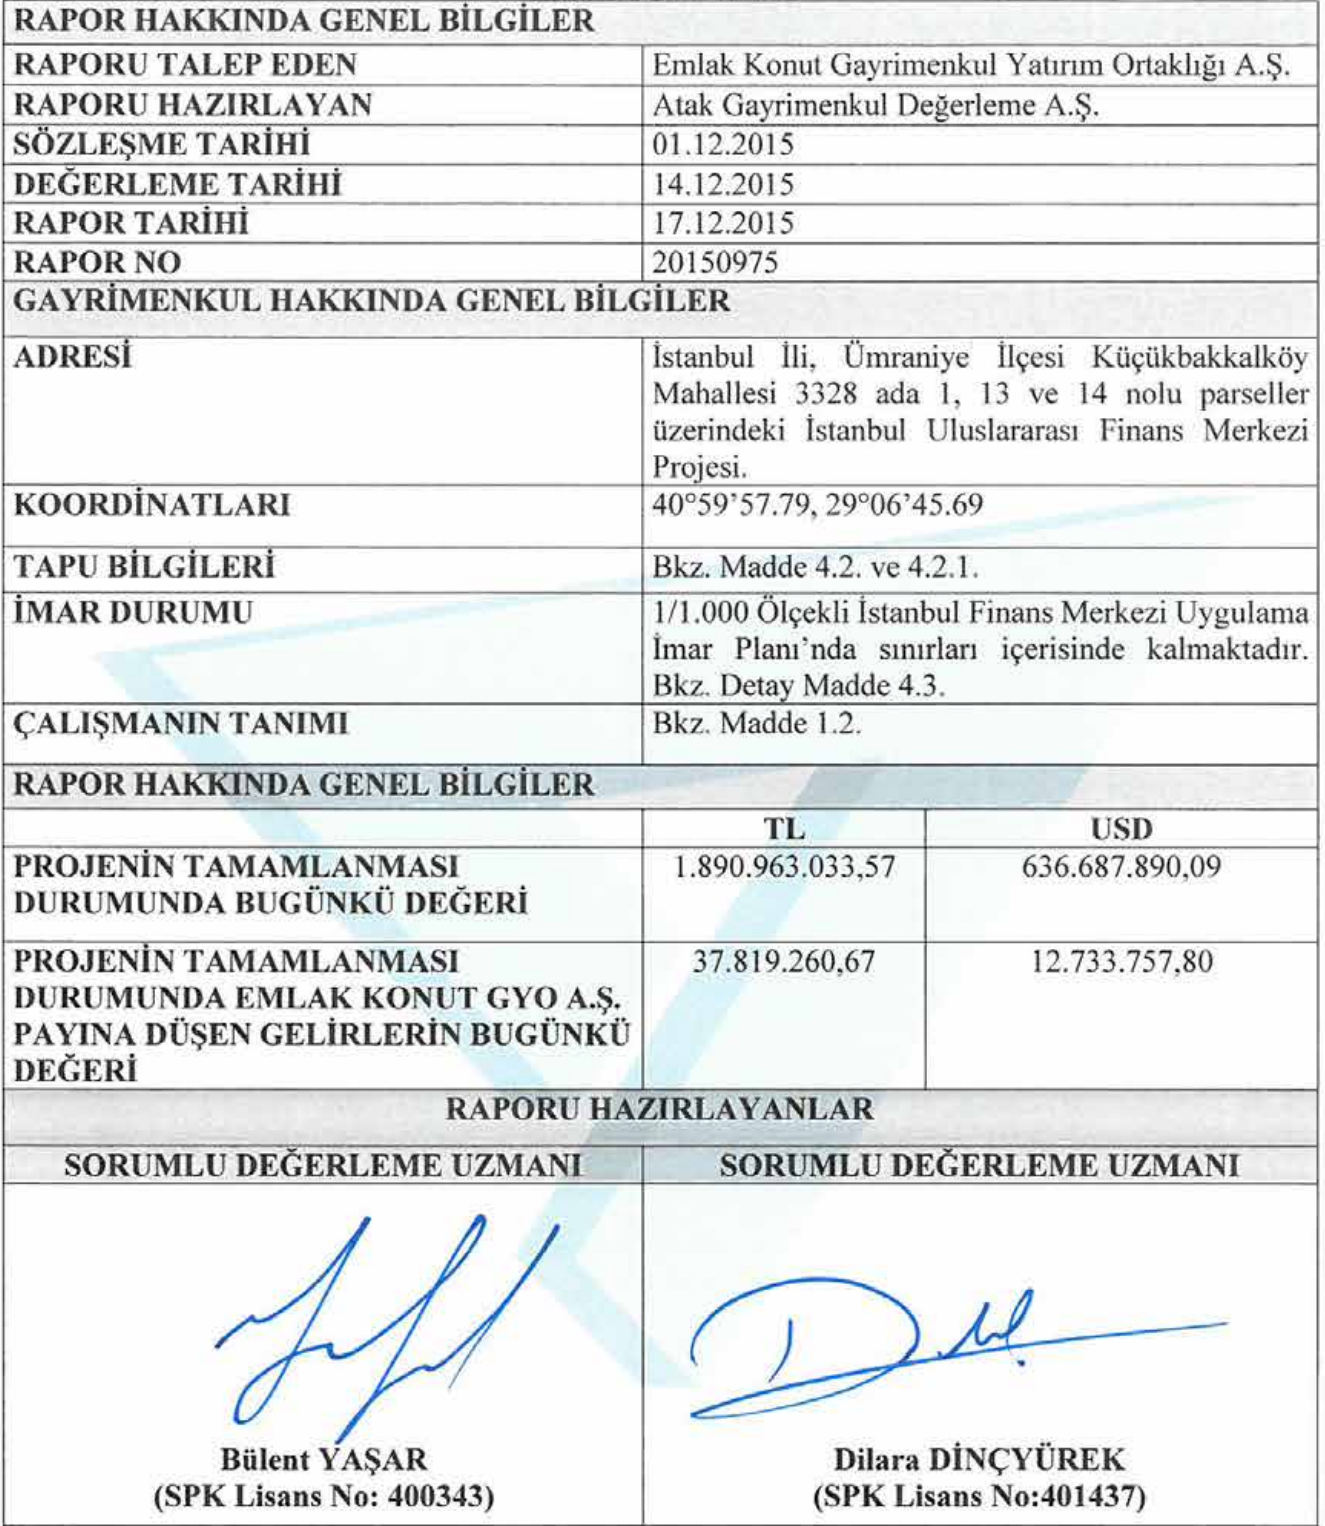 RAPOR HAKKINDA GENEL BİLGİLER
RAPORU TALEP EDEN Emlak Konut Gayrimenkul Yatırım Ortaklığı A.Ş.
RAPORU HAZIRLAYAN Atak Gayrimenkul Değerleme A.Ş.
SÖZLEŞME TARİHİ 01.12.2015
DEĞERLEME TARİHİ 14.12.2015
RAPOR TARİHİ 17.12.2015
RAPOR NO 20150975
GAYRİMENKUL HAKKINDA GENEL BİLGİLER
ADRESİ İstanbul İli, Ümraniye İlçesi Küçükbakkalköy
Mahallesi 3328 ada 1, 13 ve 14 nolu parseller
üzerindeki İstanbul Uluslararası Finans Merkezi
Projesi.
KOORDİNATLARI 40°59’57.79, 29°06’45.69
TAPU BİLGİLERİ Bkz. Madde 4.2. ve 4.2.1.
İMAR DURUMU 1/1.000 Ölçekli İstanbul Finans Merkezi Uygulama
İmar Planı’nda sınırları içerisinde kalmaktadır.
Bkz. Detay Madde 4.3.
ÇALIŞMANIN TANIMI Bkz. Madde 1.2.
RAPOR HAKKINDA GENEL BİLGİLER
TL USD
PROJENİN TAMAMLANMASI 1.890.963.033,57 636.687.890,09
DURUMUNDA BUGÜNKÜ DEĞERİ
PROJENİN TAMAMLANMASI 37.819.260,67 12.733.757,80
DURUMUNDA EMLAK KONUT GYO A.Ş.
PAYINA DÜŞEN GELİRLERİN BUGÜNKÜ
DEĞERİ
RAPORU HAZIRLAYANLAR
SORUMLU DEĞERLEME UZMANI SORUMLU DEĞERLEME UZMANI
Bülent YAŞAR Dilara DİNÇYÜREK
(SPK Lisans No: 400343) (SPK Lisans No:401437)